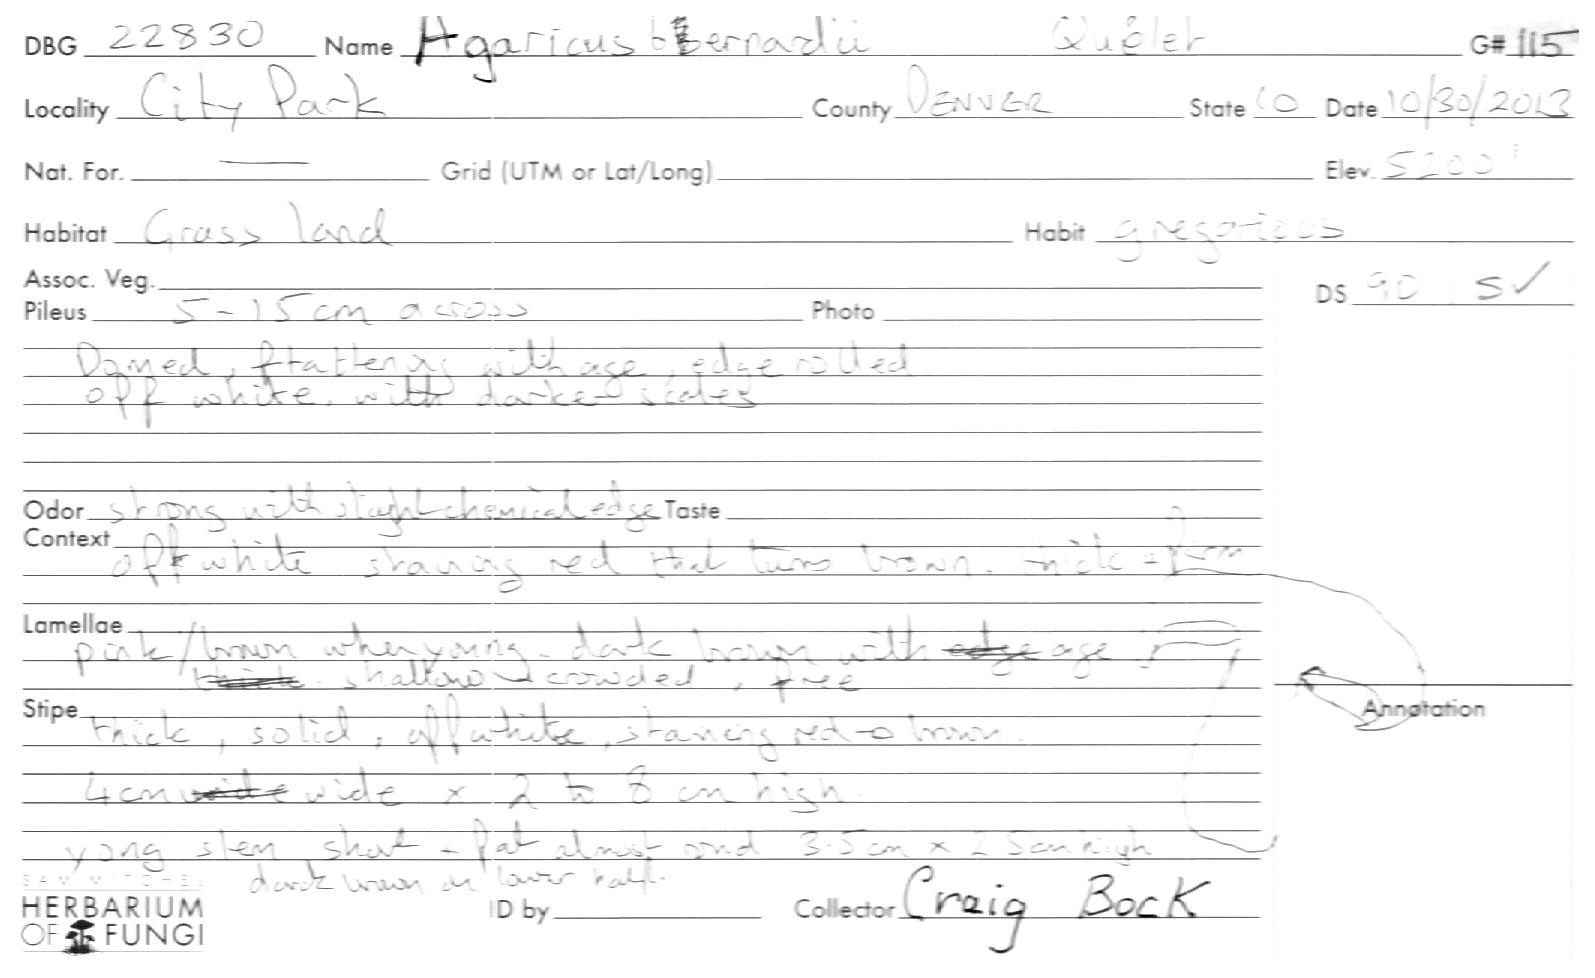 DBG 22830 Name Agaricus bernardii Quélet G# 115
Locality City Park County DENVER State CO Date 10/30/2013
Nat. For. — Grid (UTM or Lat/Long) Elev. 5200'
Habitat Grass land Habit gregarious
Assoc. Veg.
DS 90 S✓
Pileus 5-15cm across Photo
Domed, flattening with age, edge rolled.
off white. with darker scales
Odor strong with slight chemical edge Taste
Context
off white staining red that turns brown. thick + firm
Lamellae
pink/brown when young. dark brown with edge age
thick. shallow + crowded, free
Annotation
Stipe
thick, solid, off white, staining red → brown.
4cm wide wide x 2 to 8 cm high.
yong stem short + fat almost rond 3.5cm x 2.5cm high
dark brown on lower half.
SAM MITCHEL
HERBARIUM
OF FUNGI
ID by Collector Craig Bock